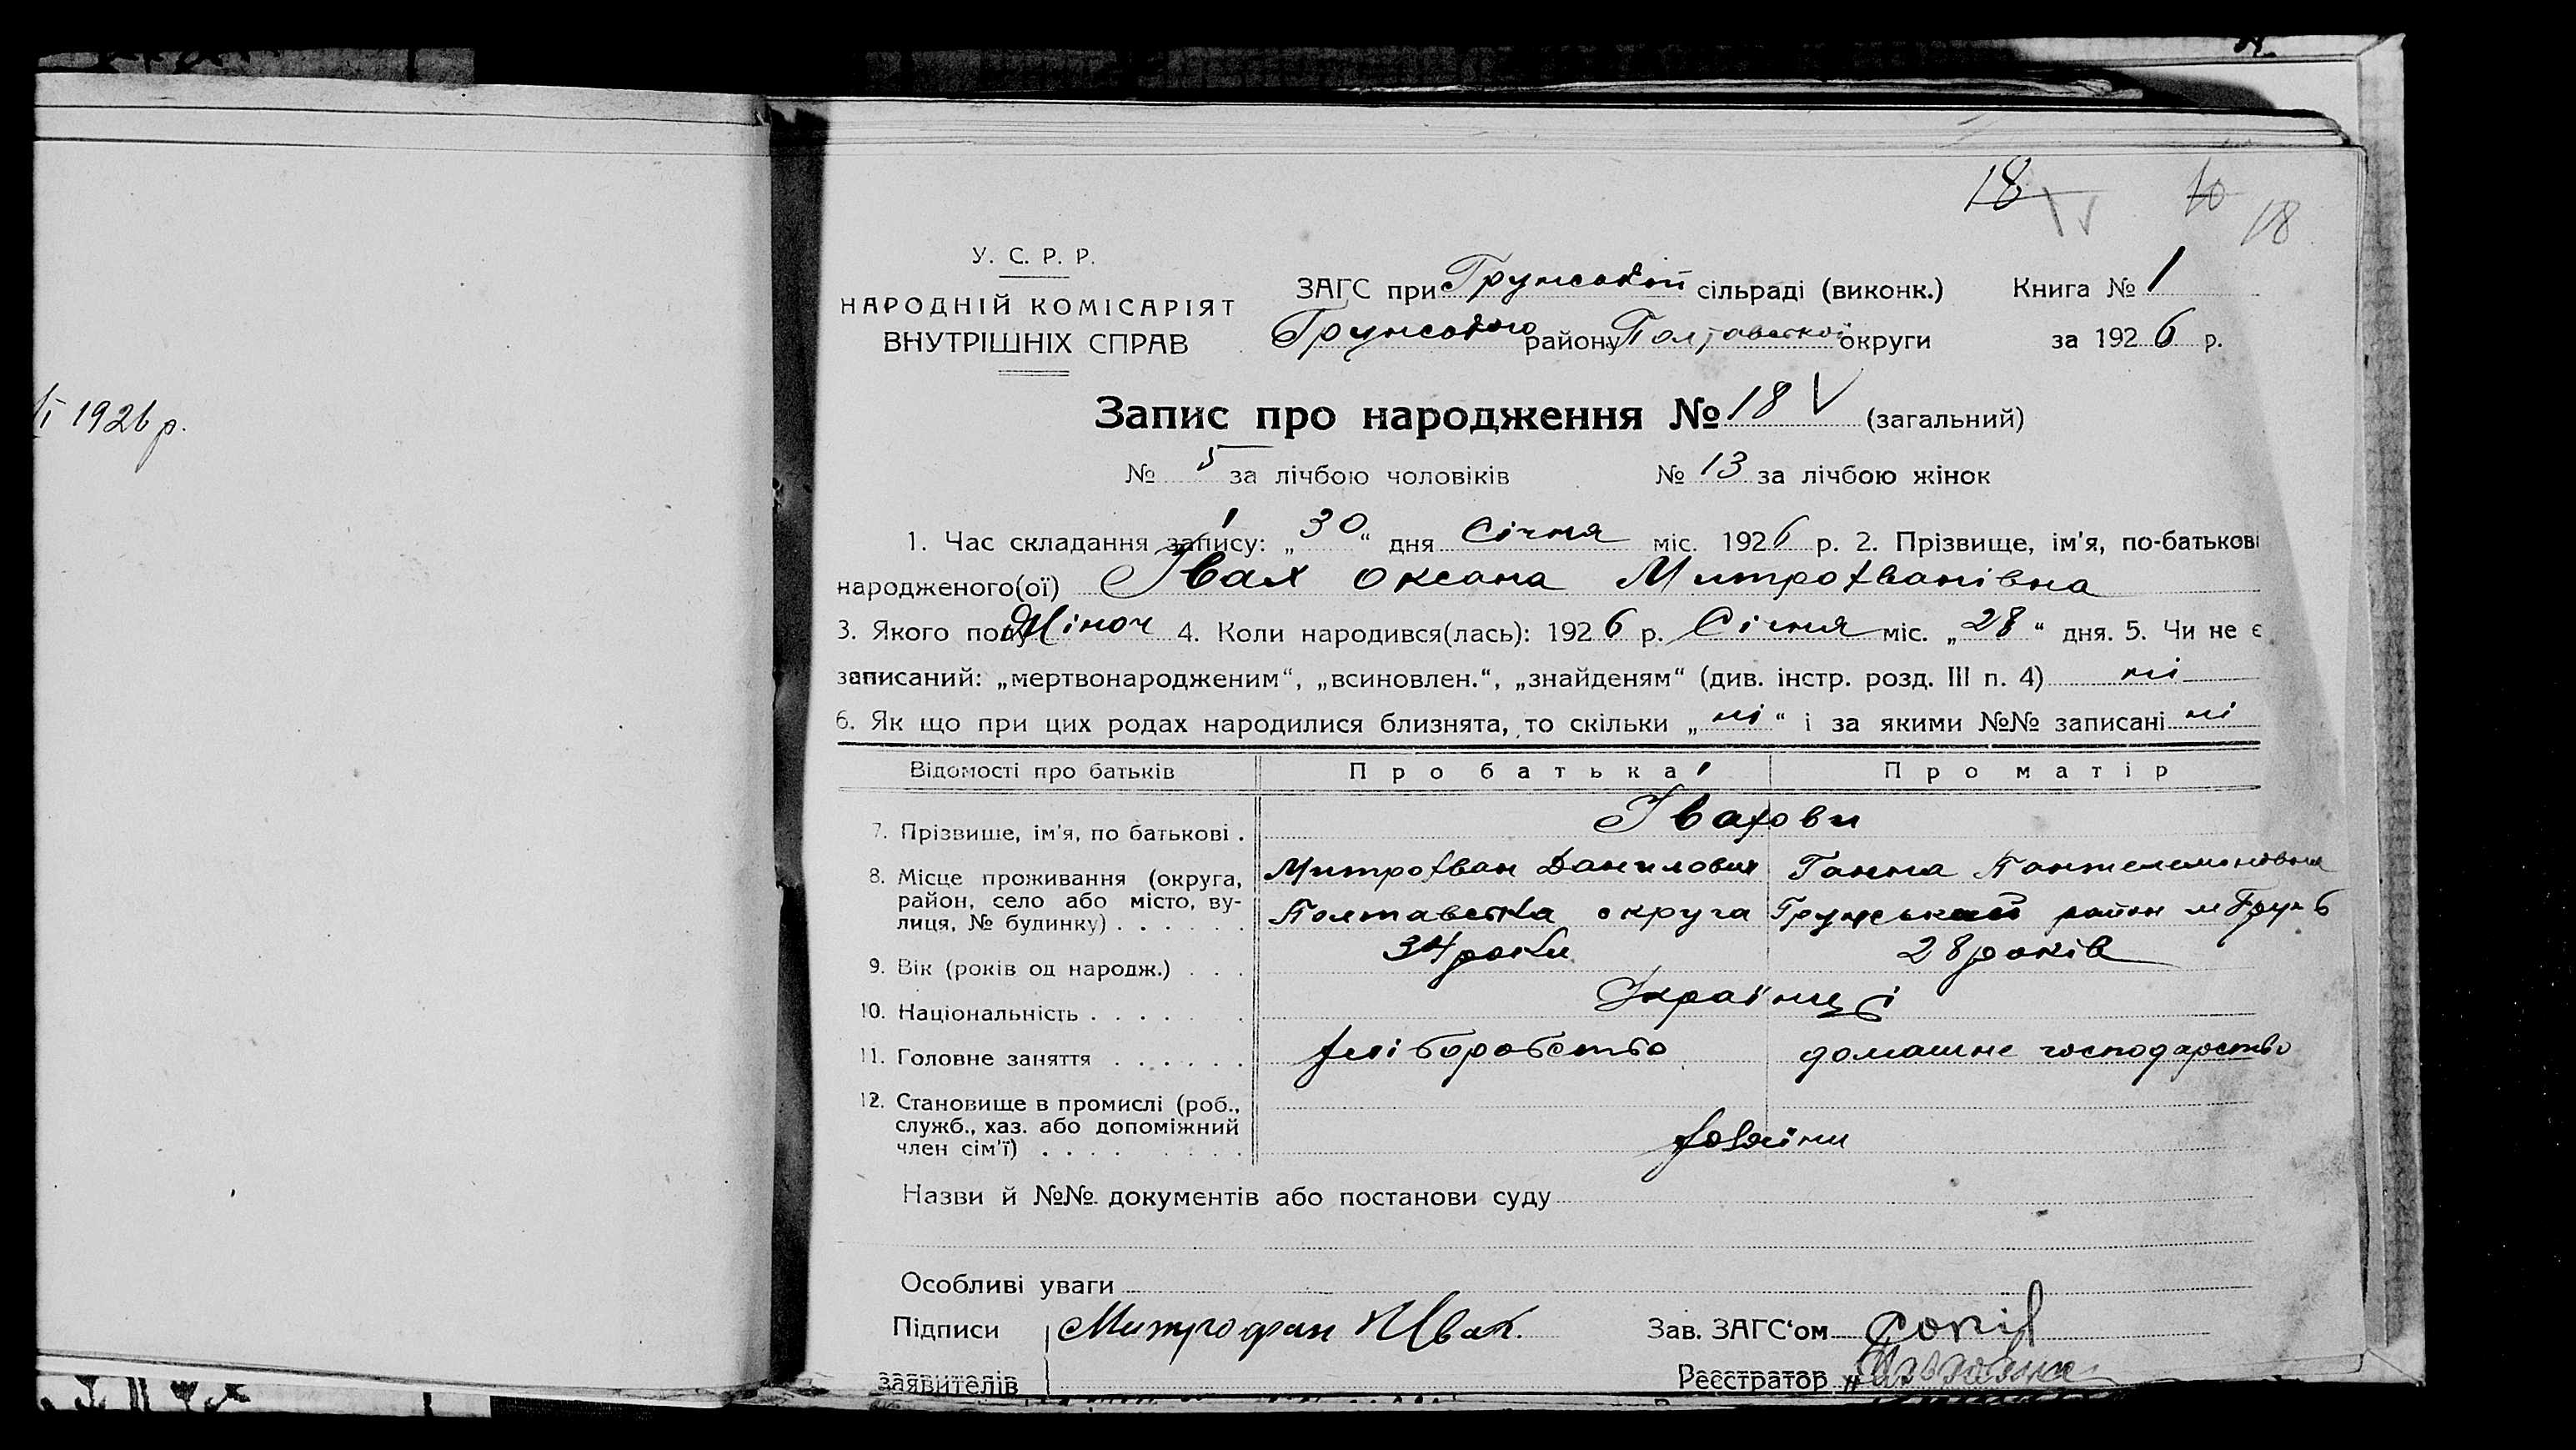 18 10
18
У. С. Р. Р.
НАРОДНІЙ КОМІСАРІЯТ
ВНУТРІШНІХ СПРАВ
ЗАГС при Грунській сільраді (виконк.) Книга № 1
Грунського району Полтавської округи за 1926 р.
1926 р.
Запис про народження № 18 V (загальний)
№ 5 за лічбою чоловіків № 13 за лічбою жінок
1. Час складання запису: „30“ дня Січня міс. 1926 р. 2. Прізвище, ім'я, по-батькові
народженого(ої) Івах Оксана Митрохванівна
3. Якого полу Жіноч 4. Коли народився(лась): 1926 р. Січня міс. „28“ дня. 5. Чи не є
записаний: „мертвонародженим“, „всиновлен.“, „знайденям“ (див. інстр. розд. III п. 4) ні
6. Як що при цих родах народилися близнята, то скільки „ні“ і за якими №№ записані ні
Відомості про батьків Про батька Про матір
7. Прізвише, ім'я, по батькові . Івахови
8. Місце проживання (округа, Митрохван Данилович Ганна Пантелемоновна
район, село або місто, ву- Полтавська округа Грунський район м Грунь
лиця, № будинку) . . . . . .
9. Вік (років од народж.) . . . 34 роки 28 років
10. Національність . . . . . . Українці
11. Головне заняття . . . . . . хліборобство домашне господарство
12. Становище в промислі (роб.,
служб., хаз. або допоміжний
член сім'ї) . . . . . . . . хазяіни
Назви й №№ документів або постанови суду
Особливі уваги
Підписи Митрофан Ивах. Зав. ЗАГС‘ом
заявителів Реєстратор